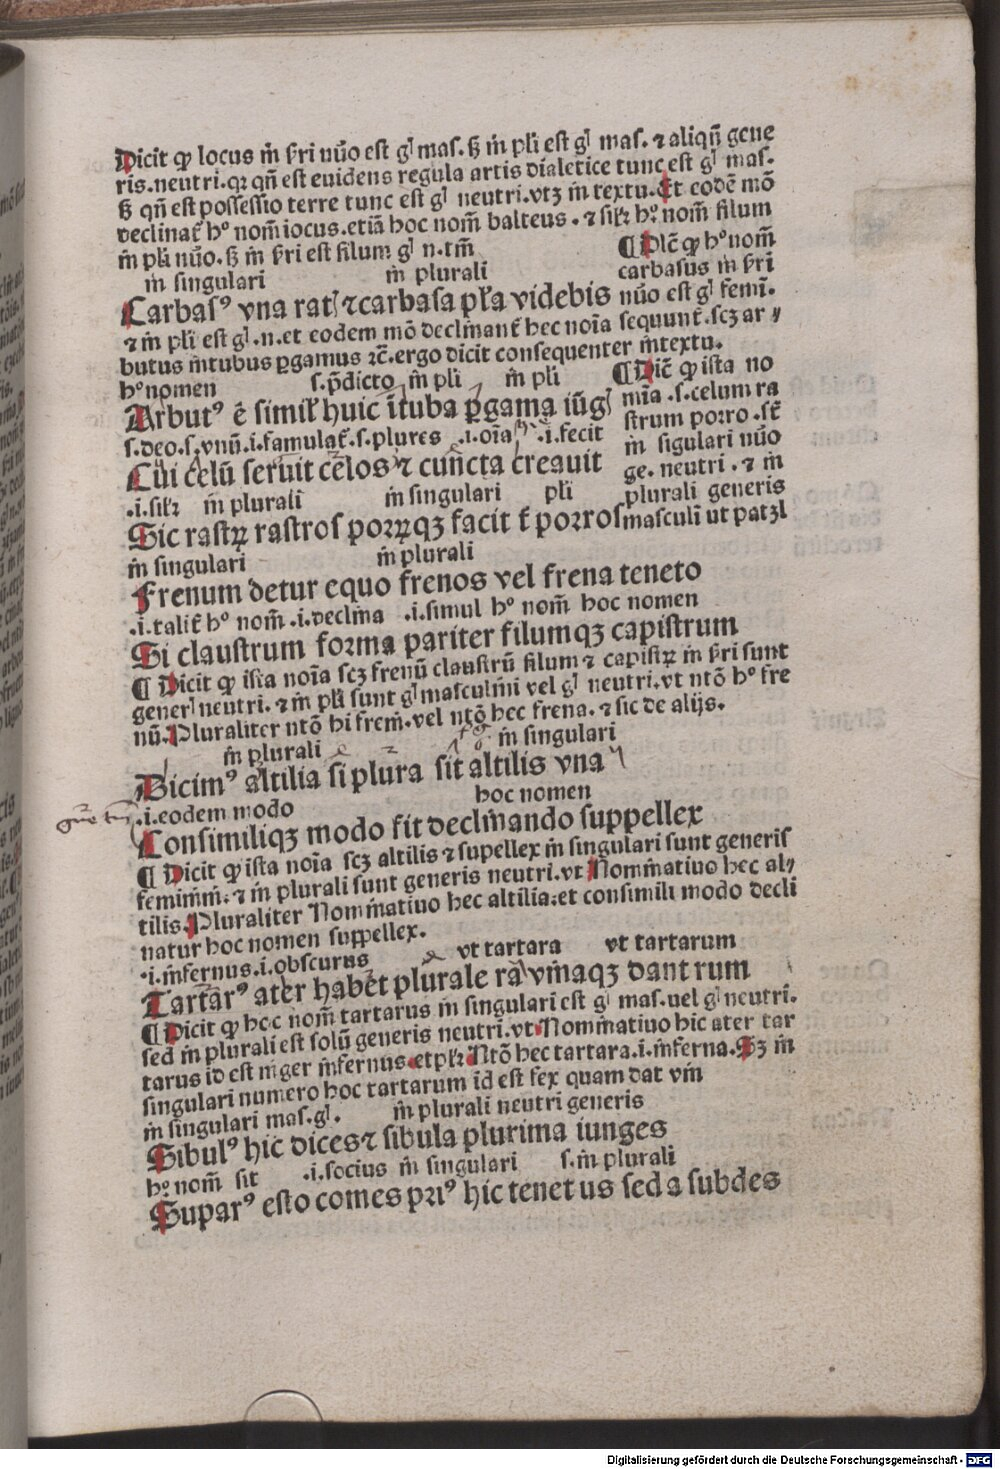 Dicit ꝙ locus in sꝛi nūo est gꝉ mas. sꝫ in pli est gꝉ mas. ⁊ aliqn̄ gene
ris. neutri. qꝛ qn̄ est euidens regula artis dialetice tunc est gꝉ mas.
sꝫ qn̄ est possessio terre tunc est gꝉ neutri. vtꝫ in textu. Et eodē mō
declinat᷑ hº nom̄ iocus. etiā hoc nom̄ balteus. ⁊ silꝛ hº. nom̄ filum
in pli nūo. sꝫ in sꝛi est filum gꝉ n. tm̄
¶ Dic̄ ꝙ hº nom̄
in singulari in plurali
carbasus in sꝛi
Carbasꝰ vna ratꝭ ⁊ carbasa plꝛa videbis
nūo est gꝉ femi.
⁊ in pli est gꝉ. n. et eodem mō declinant᷑ hec noīa sequunt᷑. scꝫ ar
butus intubus ꝑgamus ⁊c̄. ergo dicit consequenter in textu.
hº nomen s. p̄dicto in pli in pli
¶ Dic̄ ꝙ ista no
Arbutꝰ ē simil᷑ huic ītuba ꝑgama iūgꝭ
mīa. s. celum ra
s. deo. s. vnū. i. famulat᷑. s. plures .i. oīa .i. fecit
strum porro. st᷑
Cui celū seruit celos ⁊ cūncta creauit
in sigulari nūo
ge. neutri. ⁊ in
.i. silꝛ in plurali in singulari pli
plurali generis
Sic rastꝝ rastros porꝝqꝫ facit t᷑ porros
masculi ut patꝫ
in singulari in plurali
Frenum detur equo frenos vel frena teneto
.i. talit᷑ hº nom̄. i. declina .i. simul hº nom̄ hoc nomen
Si claustrum forma pariter filumqꝫ capistrum
¶ Dicit ꝙ ista noīa scꝫ frenū claustrū filum ⁊ capistꝝ in sꝛi sunt
generꝭ neutri. ⁊ in pli sunt gꝉ masculini vel gꝉ neutri. vt ntō hº fre
nū. Pluraliter ntō hi freni. vel ntō hec frena. ⁊ sic de alijs.
in plurali in singulari
Dicimꝰ altilia si plura sit altilis vna
hoc nomen
.i. eodem modo
Consimiliqꝫ modo fit declinando suppellex
¶ Dicit ꝙ ista noīa scꝫ altilis ⁊ supellex in singulari sunt generis
feminini. ⁊ in plurali sunt generis neutri. vt Nominatiuo hec al
tilis. Pluraliter Nominatiuo hec altilia. et consimili modo decli
natur hoc nomen suppellex.
.i. infernus. i. obscurus vt tartara vt tartarum
Tartarꝰ ater habet plurale ra vinaqꝫ dant rum
¶ Dicit ꝙ hoc nom̄ tartarus in singulari est gꝉ mas. uel gꝉ neutri.
sed in plurali est solū generis neutri. vt Nominatiuo hic ater tar
tarus id est niger infernus. et plꝛ Ntō hec tartara. i. inferna. Sꝫ in
singulari numero hoc tartarum id est fex quam dat vin
in singulari mas. gꝉ. in plurali neutri generis
Sibulꝰ hic dices ⁊ sibula plurima iunges
hº nom̄ sit .i. socius in singulari s. in plurali
Suparꝰ esto comes priꝰ hic tenet us sed a subdes
Digitalisierung gefördert durch die Deutsche Forschungsgemeinschaft - DFG